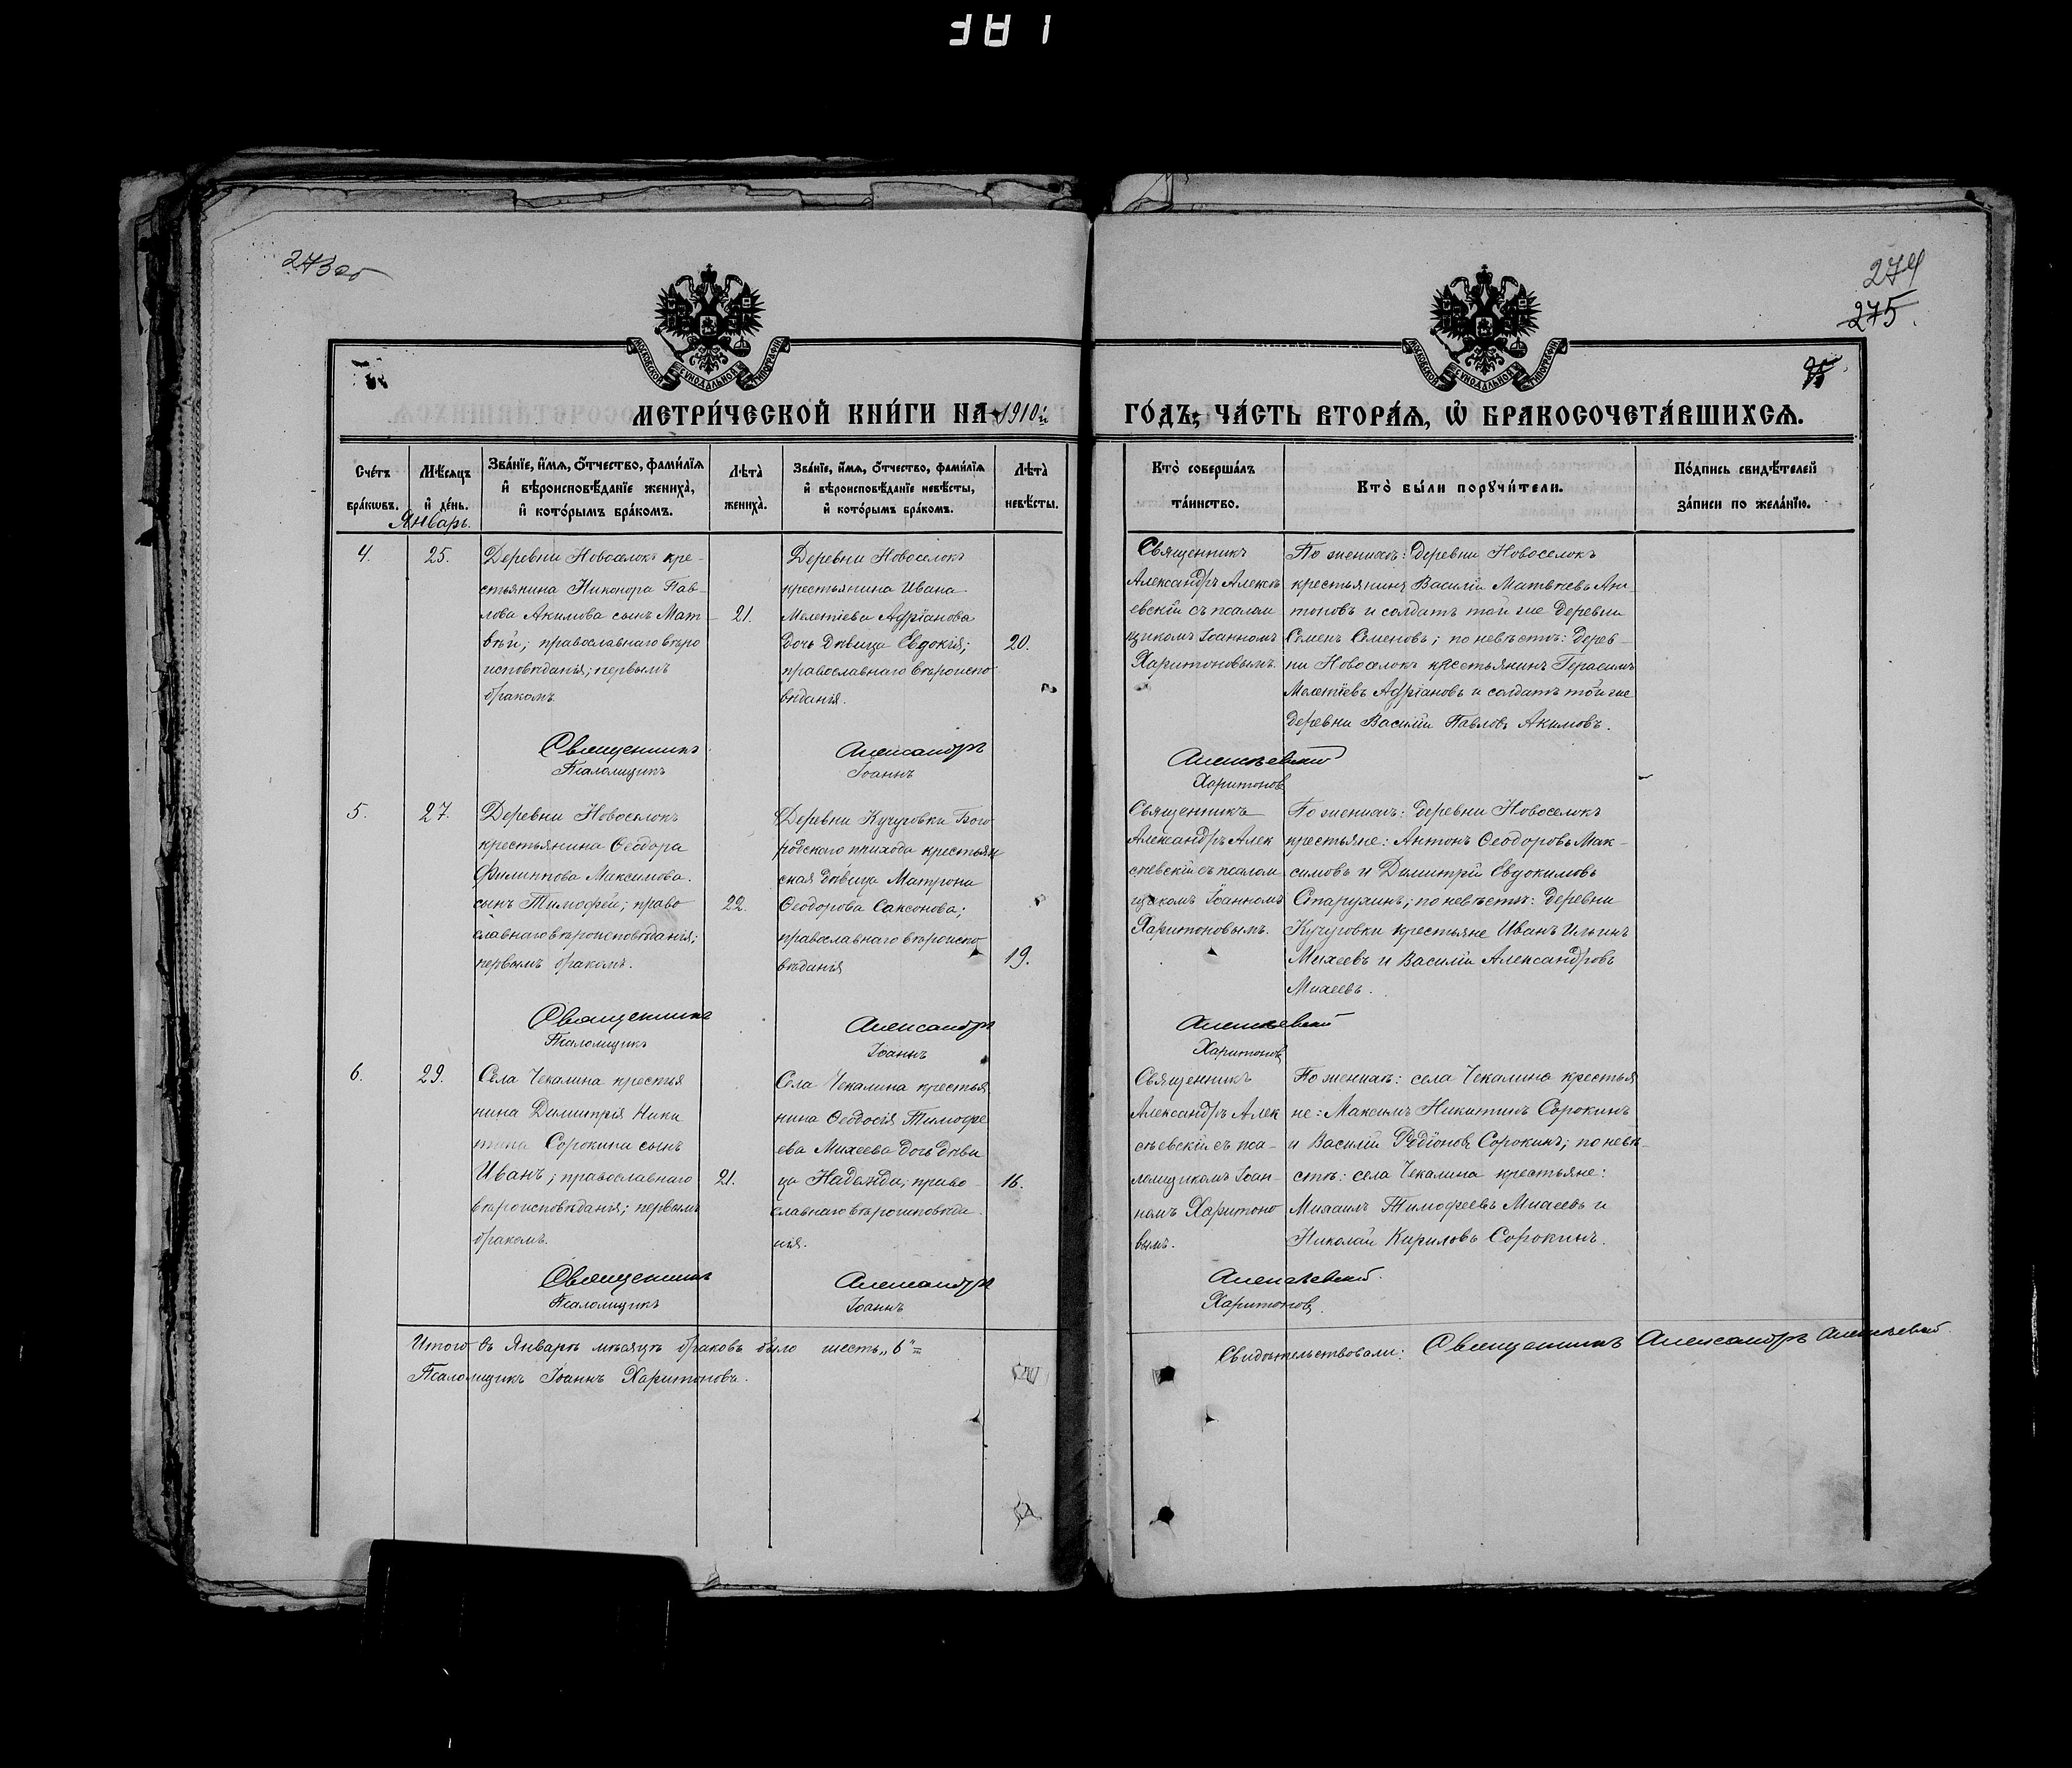 273об
274
275
МОСКОВСКОЙ СѴНОДАЛЬНОЙ ТИПОГРАФІИ
МОСКОВСКОЙ СѴНОДАЛЬНОЙ ТИПОГРАФІИ
МЕТРИ́ЧЕСКОЙ КНИ́ГИ НА 1910й ГО́ДЪ, ЧА́СТЬ ВТОРА́Я, Ѡ҆ БРАКОСОЧЕТА́ВШИХСѦ.
Сче́тъ бра́кѡвъ.
Мѣ́сяцъ и҆ де́нь.
Зва́нїе, и҆́мя, ѻ҆́тчество, фами́лїя и҆ вѣроисповѣ́данїе жениха̀, и҆ кото́рымъ бра́комъ.
Лѣта̀ жениха̀.
Зва́нїе, и҆́мя, ѻ҆́тчество, фами́лїя и҆ вѣроисповѣ́данїе невѣ́сты, и҆ кото́рымъ бра́комъ.
Лѣта̀ невѣ́сты.
Кто̀ соверша́лъ та́инство.
Кто̀ бы́ли порꙋчи́тели.
По́дпись свидѣ́телей за́писи по жела́нїю.
Январь.
4.
25.
Деревни Новоселокъ кре-
стьянина Никонора Пав-
лова Акимова сынъ Мат-
вѣй; православнаго вѣро
исповѣданія; первымъ
бракомъ.
21.
Деревни Новоселокъ
крестьянина Ивана
Мелетіева Адріанова
дочь дѣвица Евдокія;
православнаго вѣроиспо
вѣданія.
20.
Священникъ
Александръ Алексѣ
евскій съ псалом
щикомъ Іоанномъ
Харитоновымъ.
По женихѣ: деревни Новоселокъ
крестьянинъ Василій Матвѣевъ Ан-
тоновъ и солдатъ той же деревни
Семенъ Семеновъ; по невѣстѣ: дерев-
ни Новоселокъ крестьянинъ Герасимъ
Мелетіевъ Адріановъ и солдатъ той же
деревни Василій Павловъ Акимовъ.
Священникъ Александръ Алексѣевскій
Псаломщикъ Іоаннъ Харитоновъ
5.
27.
Деревни Новоселокъ
крестьянина Ѳеодора
Филиппова Максимова.
сынъ Тимофей; право
славнаго вѣроисповѣданія;
первымъ бракомъ.
22.
Деревни Кучуговки Бого
родскаго прихода крестьян
ская дѣвица Матрона
Ѳеодорова Саксонова;
православнаго вѣроиспо
вѣданія
19.
Священникъ
Александръ Алек
сѣевскій съ псалом
щикомъ Іоанномъ
Харитоновымъ.
По женихѣ: деревни Новоселокъ
крестьяне: Антонъ Ѳеодоровъ Мак-
симовъ и Димитрій Евдокимовъ
Старухинъ; по невѣстѣ: деревни
Кучуговки крестьяне Иванъ Ильинъ
Михеевъ и Василій Александровъ
Михеевъ.
Священникъ Александръ Алексѣевскій
Псаломщикъ Іоаннъ Харитоновъ
6.
29.
Села Чекалина крестья
нина Димитрія Ники
тина Сорокина сынъ
Иванъ; православнаго
вѣроисповѣданія; первымъ
бракомъ.
21.
Села Чекалина крестья
нина Ѳеодосія Тимофе
ева Михеева дочь дѣви
ца Надежда; право-
славнаго вѣроисповѣда
нія.
16.
Священникъ
Александръ Алек
сѣевскій съ пса-
ломщикомъ Іоан-
номъ Харитоно
вымъ.
По женихѣ: села Чекалина крестья
не: Максимъ Никитинъ Сорокинъ
и Василій Родіоновъ Сорокинъ; по невѣ-
стѣ: села Чекалина крестьяне:
Михаилъ Тимофеевъ Михеевъ и
Николай Кириловъ Сорокинъ.
Священникъ Александръ Алексѣевскій.
Псаломщикъ Іоаннъ Харитоновъ.
Итого въ Январѣ мѣсяцѣ браковъ было шесть „6"=
Псаломщикъ Іоаннъ Харитоновъ.
Свидѣтельствовали: Священникъ Александръ Алексѣевскій.